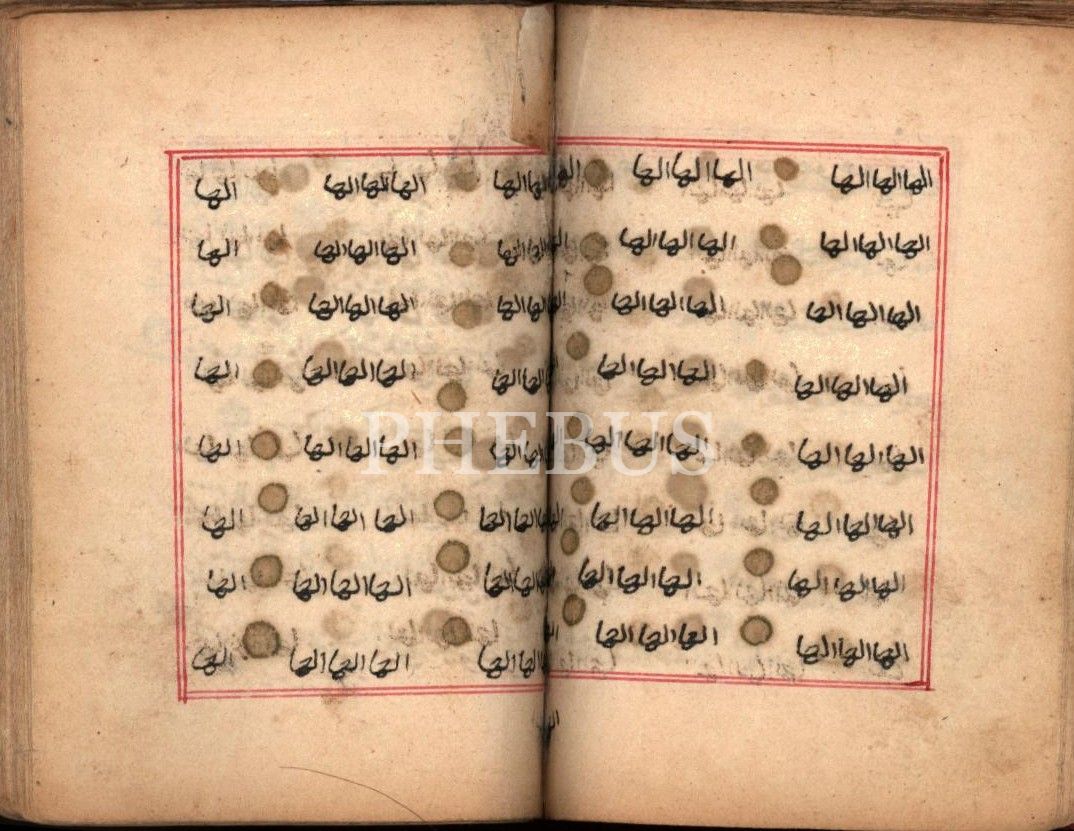 الهاالهاالها الهاالهاالها الها
الهاالهاالها الهاالهاالها
الهاالهاالها الهاالهاالها
الهاالهاالها الهاالهاالها
الهاالهاالها الهاالهاالها
الهاالهاالها الهاالهاالها
الهاالهاالها الهاالهاالها
الهاالهاالها الهاالهاالها
الهاالها الهاالهاالها الها
الهاالها الهاالهاالها الها
الهاالها الهاالهاالها الها
الهاالها الهاالهاالها الها
الهاالها الهاالهاالها الها
الهاالها الهاالهاالها الها
الهاالها الهاالهاالها الها
الهاالها الهاالهاالها الها
PHEBUS